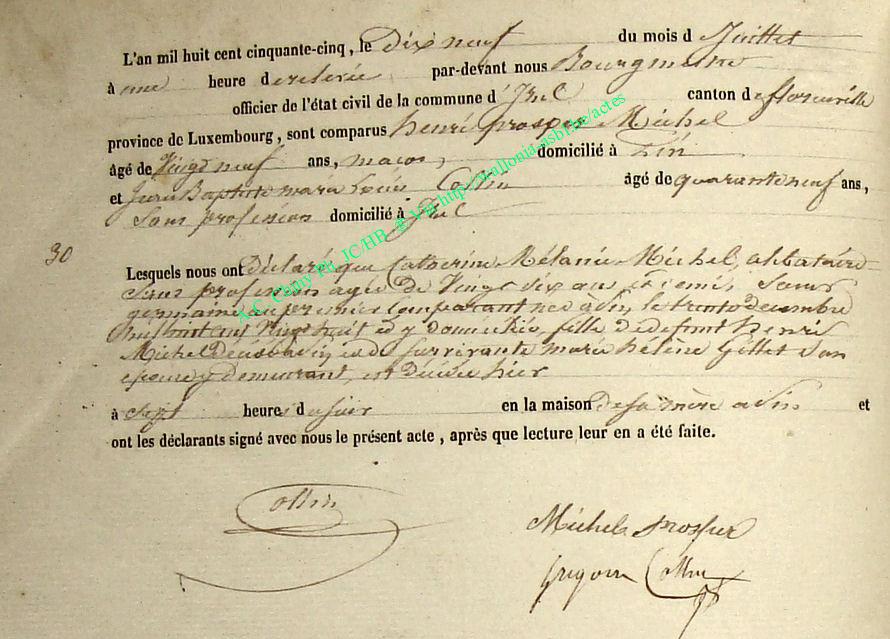 L'an mil huit cent cinquante-cinq, le Dix neuf du mois d Juillet
à une heure de relevée par-devant nous Bourgmestre
officier de l'état civil de la commune d' Izel canton de florenville
province de Luxembourg, sont comparus henri prosper Michel
âgé de Vingt neuf ans, maçon, domicilié à
et Jean Baptiste marie Collin âgé de quarante neuf ans,
Sans profession domicilié à Izel
30
Lesquels nous ont Déclaré que Catherine Mélanie Michel, célibataire
Sans profession agée de Vingt six ans et demi, Soeur
germaine du premier Comparant née à le trente décembre
mil huit cent Vingt huit et y domiciliée, fille de défunt henri
Michel décédé à et de Survivante marie hélène Gillet Son
épouse y demeurant, est décédée hier
à Sept heures du soir en la maison de sa mère a et
ont les déclarants signé avec nous le présent acte, après que lecture leur en a été faite.
Collin
Michel prosper
Collin
A.C. Chiny Ph. JC/HB @ Via http://wallonia-asbl.be/actes